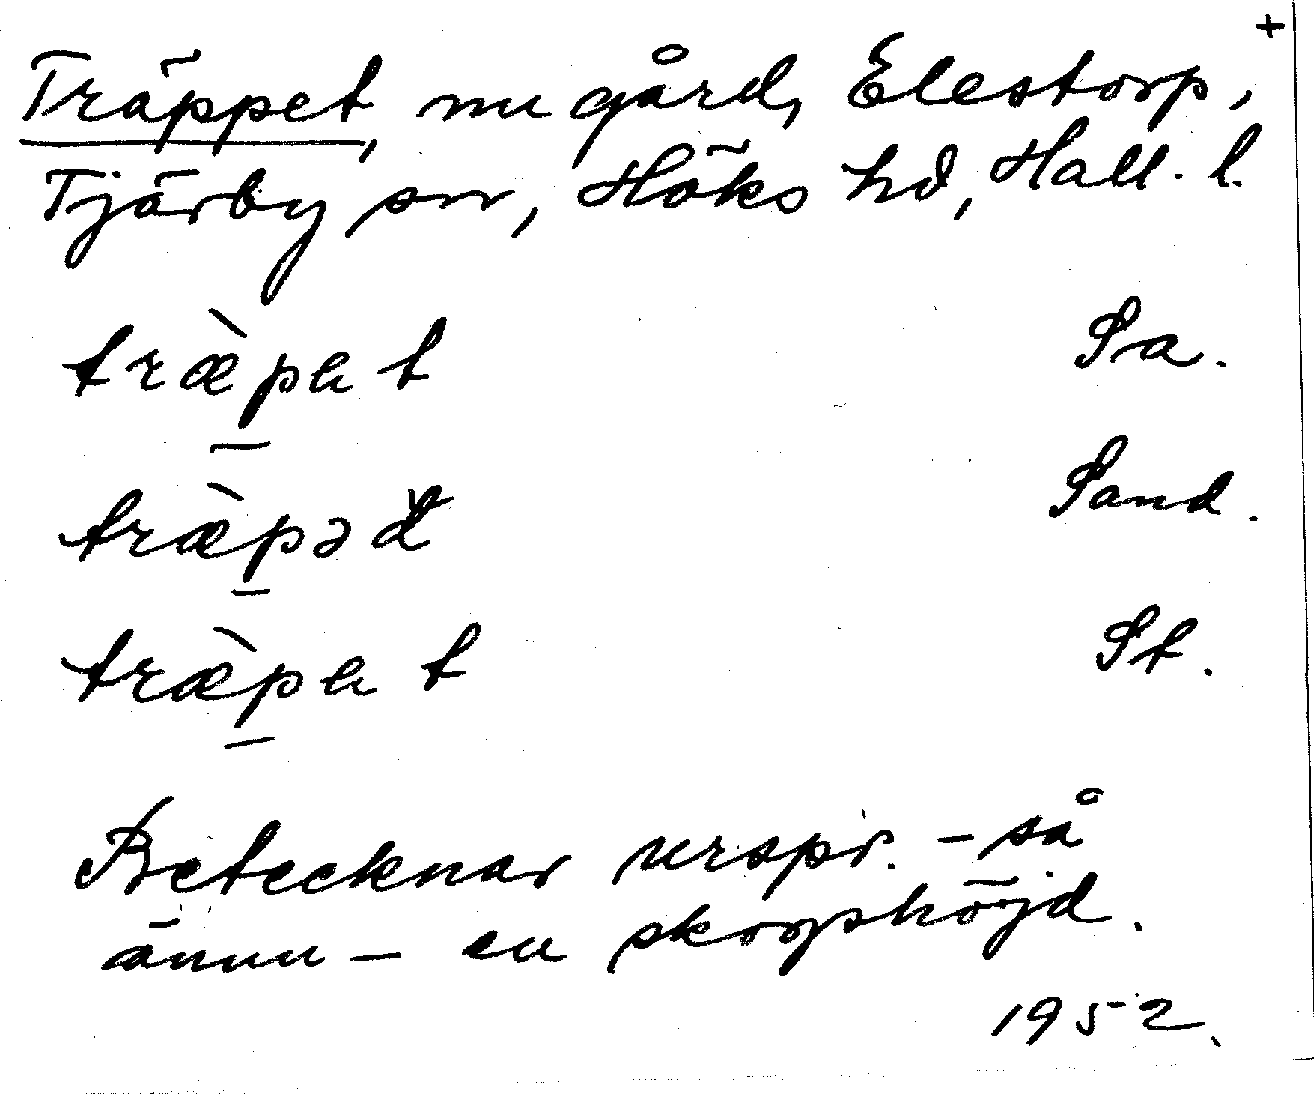 +
Träppet, nu gård, Elestorp,
Tjärby sn, Höks hd, Hall. l.
træ̀pet Sa.
træ̀pəd Sand.
træ̀pet St.
Betecknar urspr. – så
ännu – en skogshöjd.
1952.